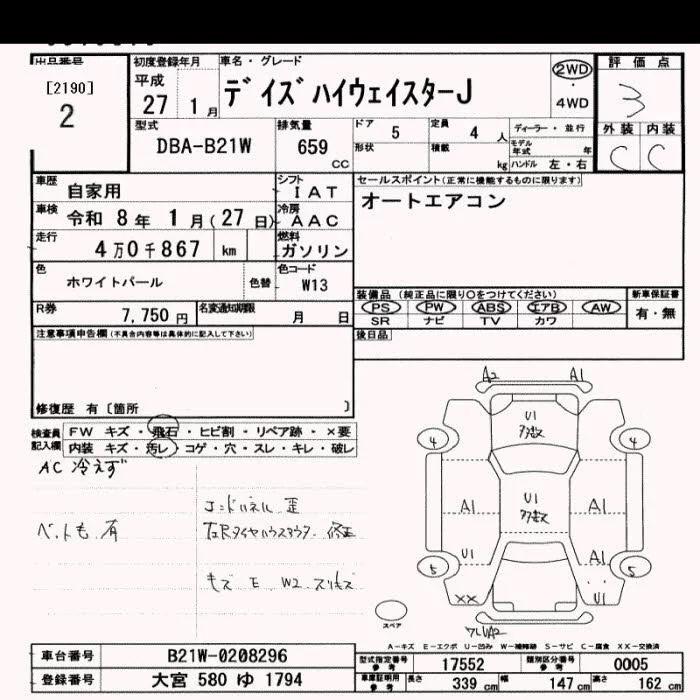 出品番号
[2190]
2
初度登録年月
平成
27 1月
車名・グレード
デイズハイウェイスターJ
2WD
・
4WD
評価点
3
外装 内装
C C
型式
DBA-B21W
排気量
659
CC
ドア 5
定員 4 人
形状
積載 kg
ディーラー・並行
モデル年式 年
ハンドル 左・右
車歴
自家用
シフト
IAT
車検
令和 8年 1月(27日)
冷房
AAC
走行
4万0千867 km
燃料
ガソリン
色
ホワイトパール
色替
色コード
W13
R券
7,750円
名変通知期限
月 日
セールスポイント(正常に機能するものに限ります)
オートエアコン
装備品 (純正品に限り○をつけてください)
PS PW ABS エアB AW
SR ナビ TV カワ
新車保証書
有・無
後日品
注意事項申告欄(不具合内容等は具体的に記入して下さい)
修復歴 有〔箇所 〕
検査員
記入欄
FW キズ・飛石・ヒビ割・リペア跡・×要
内装 キズ・汚レ・コゲ・穴・スレ・キレ・破レ
AC 冷えず
歪
有
修正
キズ E W2
A2 A1
U1
4 4
A1
U1
A1
U1
A1
5 5
XX
U1
スペア
A-キズ E-エクボ U-凹み W-補修跡 S-サビ C-腐食 XX-交換済
車台番号
B21W-0208296
登録番号
大宮 580 ゆ 1794
型式指定番号
参考
17552
類別区分番号
参考
0005
車庫証明用
参考
長さ 339 cm
幅 147 cm
高さ 162 cm